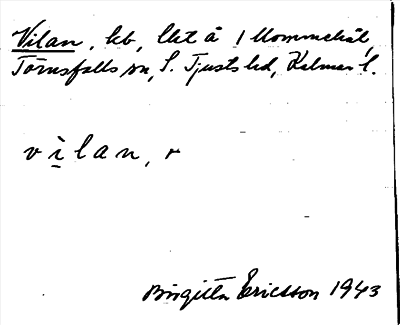 Vilan, hb, lht å 1 Mommehål,
Törnsfalls sn, S. Tjusts hd, Kalmar l.
vilan, r
Birgitta Ericsson 1943